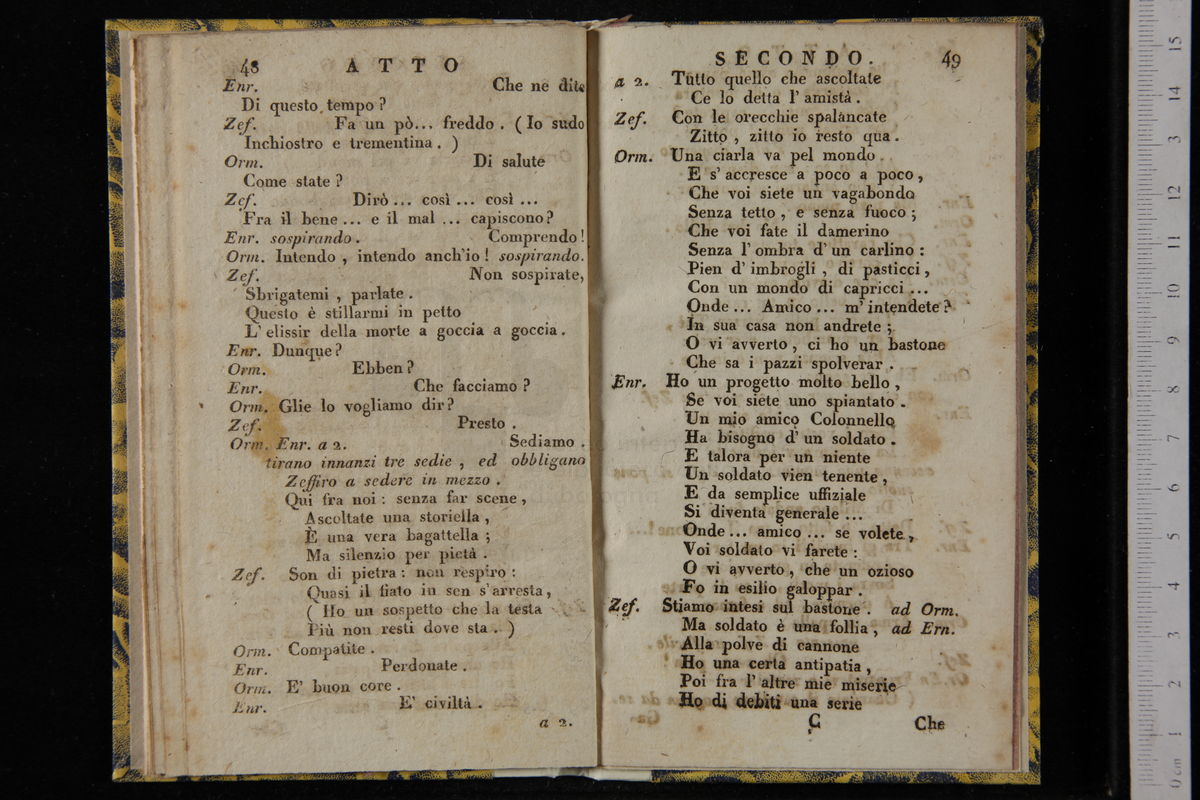 48 ATTO
Enr. Che ne dite
Di questo tempo ?
Zef. Fa un pò... freddo . ( Io sudo
Inchiostro e trementina . )
Orm. Di salute
Come state ?
Zef. Dirò ... così ... così ...
Fra il bene ... e il mal ... capiscono ?
Enr. sospirando . Comprendo !
Orm. Intendo , intendo anch'io ! sospirando.
Zef. Non sospirate,
Sbrigatemi , parlate .
Questo è stillarmi in petto
L' elissir della morte a goccia a goccia .
Enr. Dunque ?
Orm. Ebben ?
Enr. Che facciamo ?
Orm. Glie lo vogliamo dir ?
Zef. Presto .
Orm. Enr. a 2. Sediamo .
tirano innanzi tre sedie , ed obbligano
Zeffiro a sedere in mezzo .
Qui fra noi : senza far scene ,
Ascoltate una storiella ,
È una vera bagattella ;
Ma silenzio per pietà .
Zef. Son di pietra : non respiro :
Quasi il fiato in sen s'arresta ,
( Ho un sospetto che la testa
Più non resti dove sta . )
Orm. Compatite .
Enr. Perdonate .
Orm. E' buon core .
Enr. E' civiltà .
a 2.
SECONDO. 49
a 2. Tutto quello che ascoltate
Ce lo detta l' amistà .
Zef. Con le orecchie spalancate
Zitto , zitto io resto qua .
Orm. Una ciarla va pel mondo
E s' accresce a poco a poco ,
Che voi siete un vagabondo
Senza tetto , e senza fuoco ;
Che voi fate il damerino
Senza l' ombra d' un carlino :
Pien d' imbrogli , di pasticci ,
Con un mondo di capricci ...
Onde ... Amico ... m' intendete ?
In sua casa non andrete ;
O vi avverto , ci ho un bastone
Che sa i pazzi spolverar .
Enr. Ho un progetto molto bello ,
Se voi siete uno spiantato .
Un mio amico Colonnello
Ha bisogno d' un soldato .
E talora per un niente
Un soldato vien tenente ,
E da semplice uffiziale
Si diventa generale ...
Onde ... amico ... se volete ,
Voi soldato vi farete :
O vi avverto , che un ozioso
Fo in esilio galoppar .
Zef. Stiamo intesi sul bastone . ad Orm.
Ma soldato è una follia , ad Ern.
Alla polve di cannone
Ho una certa antipatia ,
Poi fra l' altre mie miserie
Ho di debiti una serie
C Che